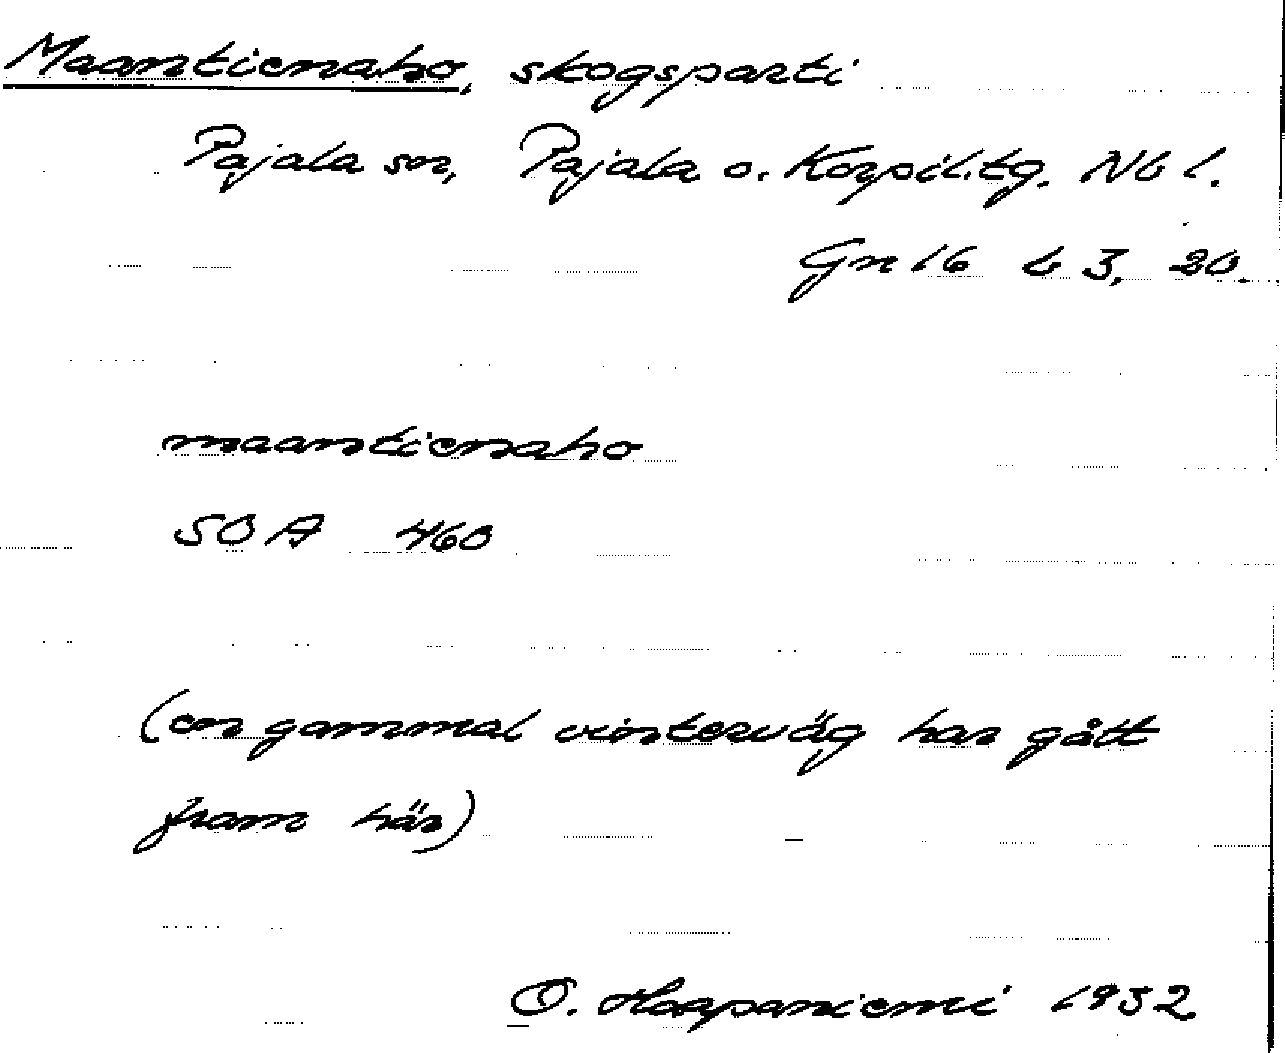 Maantienaho, skogsparti
Pajala sn, Pajala o. Korpil.tg. Nb l.
Gn 16 b 3, 20.
maantienaho
SOA 460
(en gammal vinterväg har gått
fram här)
O. Haapaniemi 1952